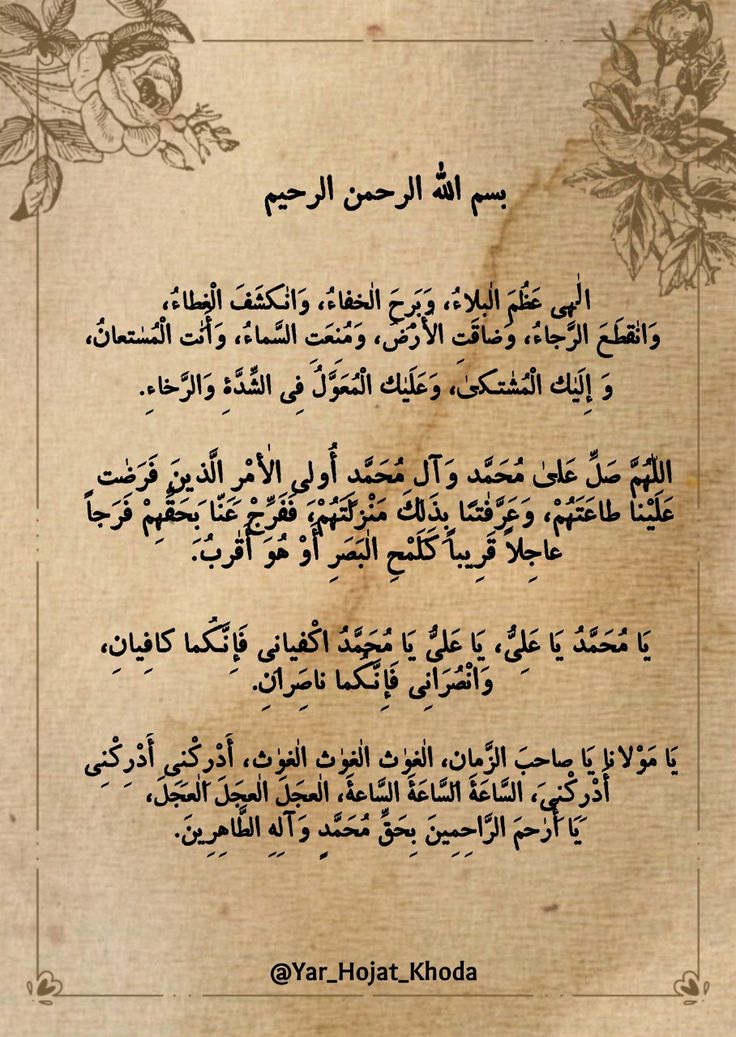 بسم الله الرحمن الرحیم
الٰهِی عَظُمَ الْبلاءُ، وَبَرِحَ الْخفاءُ، وَانْکشَفَ الْغِطاءُ،
وَانْقطَعَ الرَّجاءُ، وَضاقَتِ الْأَرْضُ، وَمُنِعَتِ السَّماءُ، وَأَنْت الْمُسْتعانُ،
وَ إِلَیْك الْمُشْتکیٰ، وَعَلَیْك الْمُعَوَّلُ فِی الشِّدَّةِ وَالرَّخاءِ.
اللّٰهُمَّ صَلِّ عَلیٰ مُحَمَّد وَآلِ مُحَمَّد أُولی الْأمْرِ الَّذینَ فَرَضْت
عَلَیْنا طاعَتَهُمْ، وَعَرَّفْتنا بِذَلِكَ مَنْزِلَتَهُمْ، فَفَرِّجْ عَنّا بَحَقِّهِمْ فَرَجاً
عاجِلاً قَرِیباً کَلَمْحِ الْبَصَرِ أَوْ هُوَ أَقْربُ.
یَا مُحَمَّدُ یَا عَلِیُّ، یَا عَلیُّ یَا مُحَمَّدُ اکْفیانِی فَإِنَّکُما کافِیانِ،
وَانْصُرَانِی فَإِنَّکُما ناصِرانِ.
یَا مَوْلانا یَا صاحبَ الزَّمانِ، الْغوْث الْغوْث الْغوْث، أَدْرِکْنی أَدْرِکْنِی
أَدْرِکْنِی، السَّاعَةَ السَّاعَةَ السَّاعةَ، الْعجَلَ الْعجَلَ الْعَجَلَ،
یَا أَرْحمَ الرَّاحِمِینَ بِحَقِّ مُحَمَّدٍ وَآلِهِ الطَّاهِرِینَ.
@Yar_Hojat_Khoda